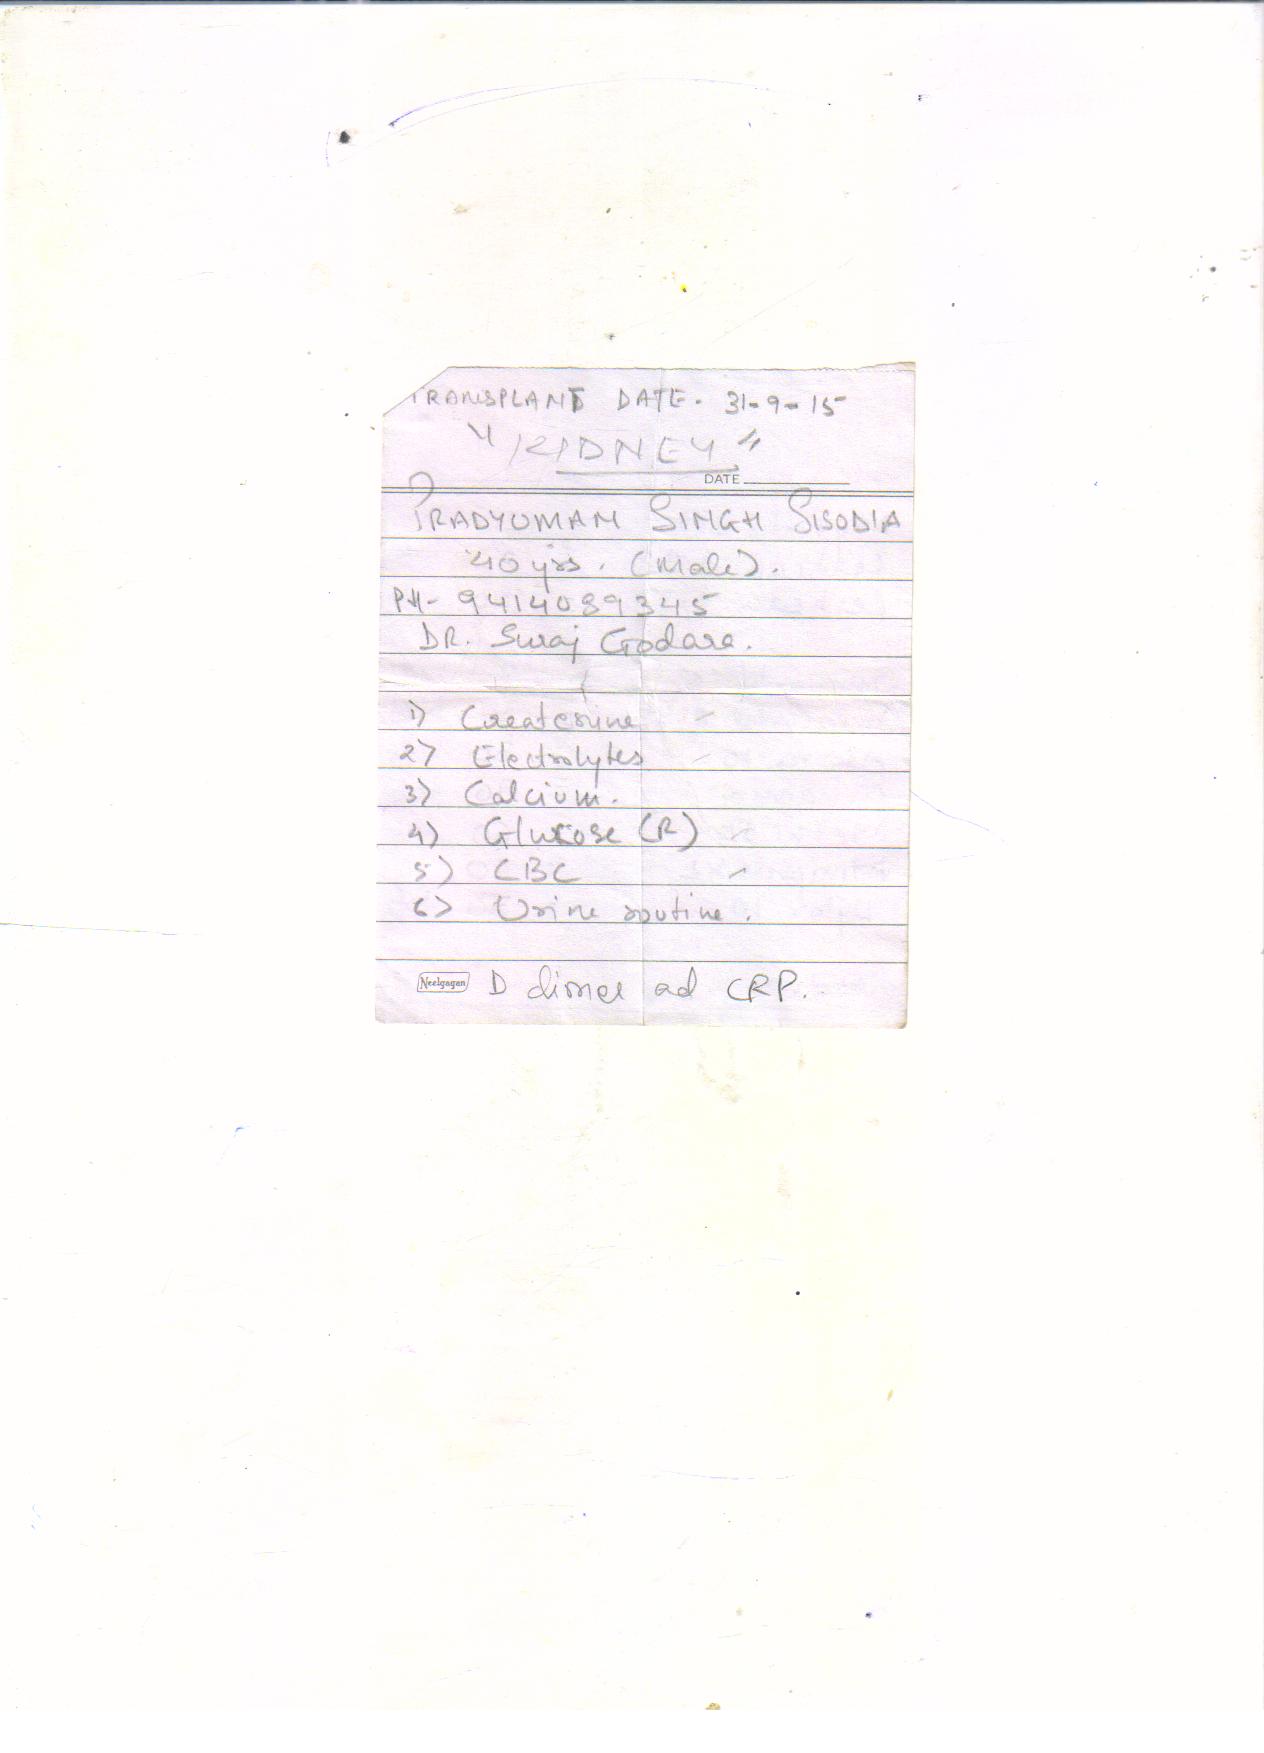 TRANSPLANT DATE. 31-9-15
"KIDNEY"
DATE
PRADYUMAN SINGH SISODIA
40 yrs. (Male).
PH- 9414089345
DR. Suraj Godara.
1) Createnine
2) Electrolytes
3) Calcium.
4) Glucose (R)
5) CBC
6) Urine routine.
Neelgagan D dimer ad CRP.